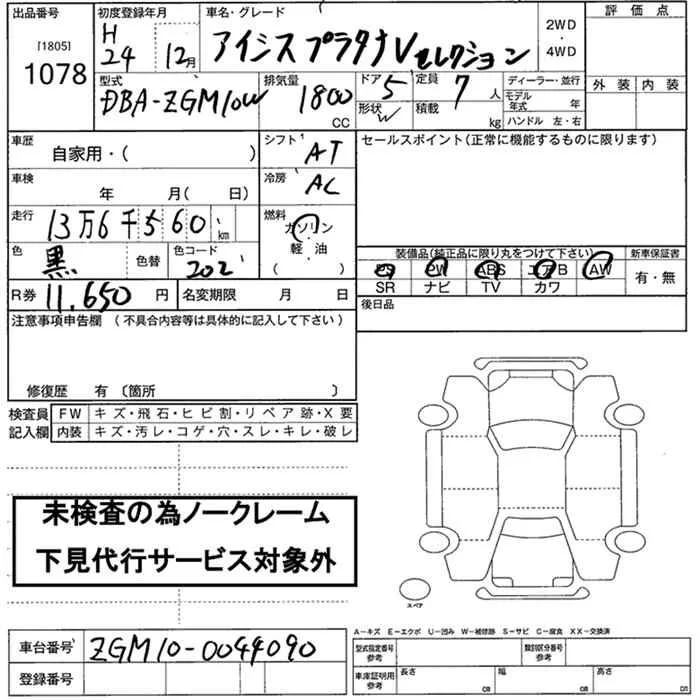 出品番号 初度登録年月 車名・グレード 評価点
[1805] 1078
H 24 12月 アイシス プラタナ Vセレクション 2WD・4WD
型式 排気量 ドア 5 定員 7人 ディーラー・並行 外装 内装
DBA-ZGM10W 1800 CC 形状 W 積載 kg モデル年式 年
ハンドル 左・右
車歴 自家用・( ) シフト AT セールスポイント(正常に機能するものに限ります)
車検 年 月( 日) 冷房 AC
走行 13万6千560km 燃料 ガソリン・軽・油 ( )
色 黒 色替 色コード 202
装備品(純正品に限り丸をつけて下さい) 新車保証書
PS PW ABS エアB AW 有・無
SR ナビ TV カワ
R券 11,650円 名変期限 月 日 後日品
注意事項申告欄 (不具合内容等は具体的に記入して下さい)
修復歴 有〔箇所 〕
検査員 FW キズ・飛石・ヒビ割・リペア跡・X要
記入欄 内装 キズ・汚レ・コゲ・穴・スレ・キレ・破レ
未検査の為ノークレーム
下見代行サービス対象外
スペア
A-キズ E-エクボ U-凹み W-補修跡 S-サビ C-腐食 XX-交換済
車台番号 ZGM10-0044090 型式指定番号 参考 類別区分番号 参考
登録番号 車庫証明用 参考 長さ cm 幅 cm 高さ cm